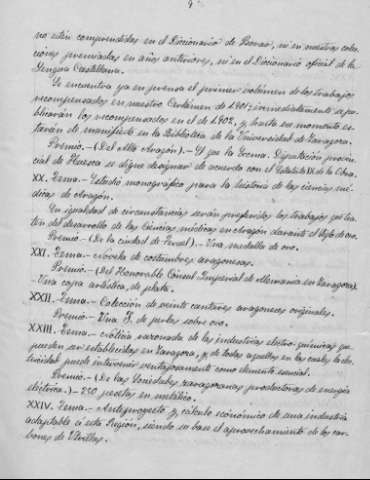 4
no están comprendidas en el Diccionario de Borao, ni en nuestras colec-
ciones premiadas en años anteriores, ni en el Diccionario oficial de la
Lengua Castellana.
Se encuentra ya en prensa el primer volúmen de los trabajos
recompensados en nuestro Certámen de 1901; inmediatamente se pu-
blicarán los recompensados en el de 1902, y hasta su momento es-
tarán de manifiesto en la Biblioteca de la Universidad de Zaragoza.
Premio.- (Del Alto Aragón).- El que la Excma. Diputación provin-
cial de Huesca se digne designar de acuerdo con el
XX. Tema.- Estudio monográfico para la historia de las ciencias mé-
dicas de Aragón.
En igualdad de circunstancias serán preferidos los trabajos que tra-
ten del desarrollo de las ciencias médicas en Aragón durante el siglo de oro.
Premio.- (De la ciudad de Teruel).- Una medalla de oro.
XXI. Tema.- Novela de costumbres aragonesas.
Premio.- (Del Honorable Cónsul Imperial de Alemania en Zaragoza)
Una copa artística, de plata.
XXII. Tema.- Colección de veinte cantares aragoneses originales.
Premio.- Una F. de perlas sobre oro.
XXIII. Tema.- Noticia razonada de las industrias electro-químicas que
pueden ser establecidas en Zaragoza, y de todas aquellas en las cuales la elec-
tricidad puede intervenir ventajosamente como elemento esencial.
Premio.- (De las Sociedades zaragozanas productoras de energía
eléctrica).- 250 pesetas en metálico.
XXIV. Tema.- Anteproyecto y cálculo económico de una industria
adaptable á esta Región, siendo su base el aprovechamiento de los car-
bones de Utrillas.